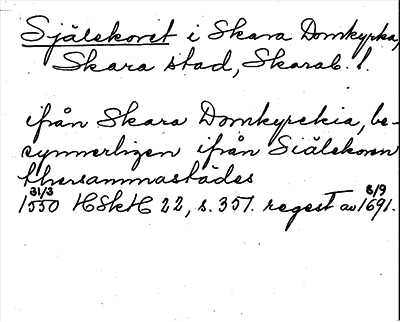 Själekoret i Skara Domkyrka,
Skara stad, Skarab. l.
ifrån Skara Domkyrckia, be-
synnerligen ifrån Siälekoren
thersammastädes
31/3 1550 HSkH 22, s. 357. regest av 8/9 1691.